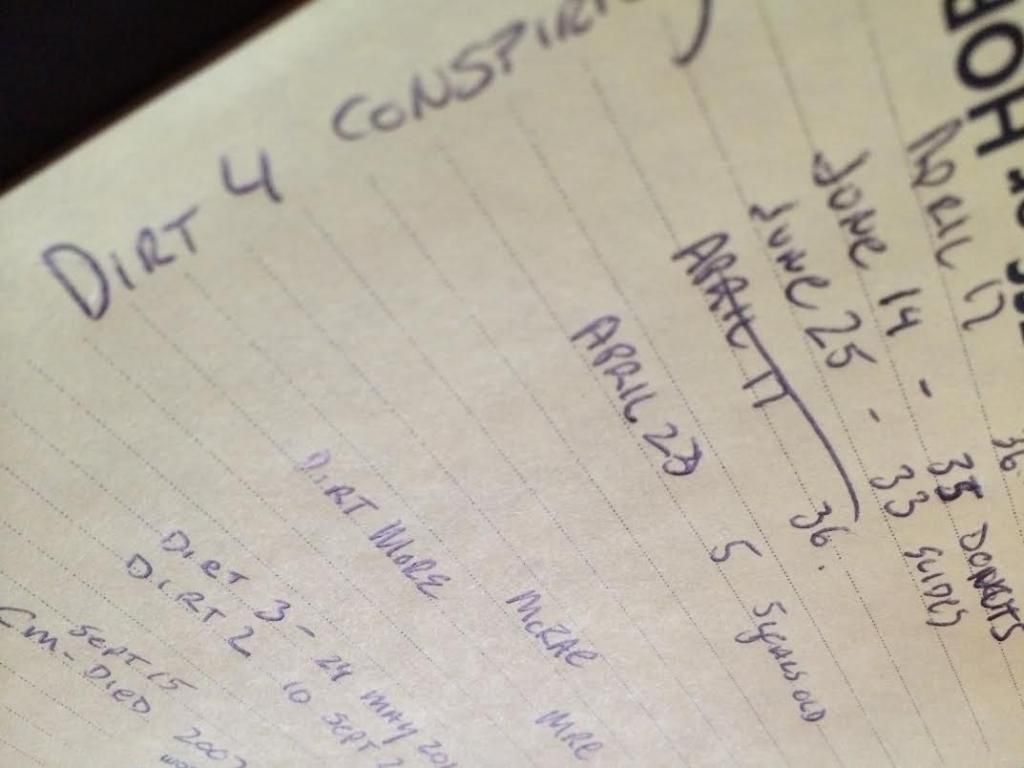 DIRT 4 CONSPIR
APRIL 17 36
JUNE 14 - 35 DONUTS
JUNE 25 - 33 SLIDES
APRIL 17 36.
APRIL 23 5 5 YEARS OLD
DIRT MORE MCRAE MRE
DIRT 3 - 24 MAY 201
DIRT 2 10 SEPT 2
SEPT 15 2007
CM-DIED